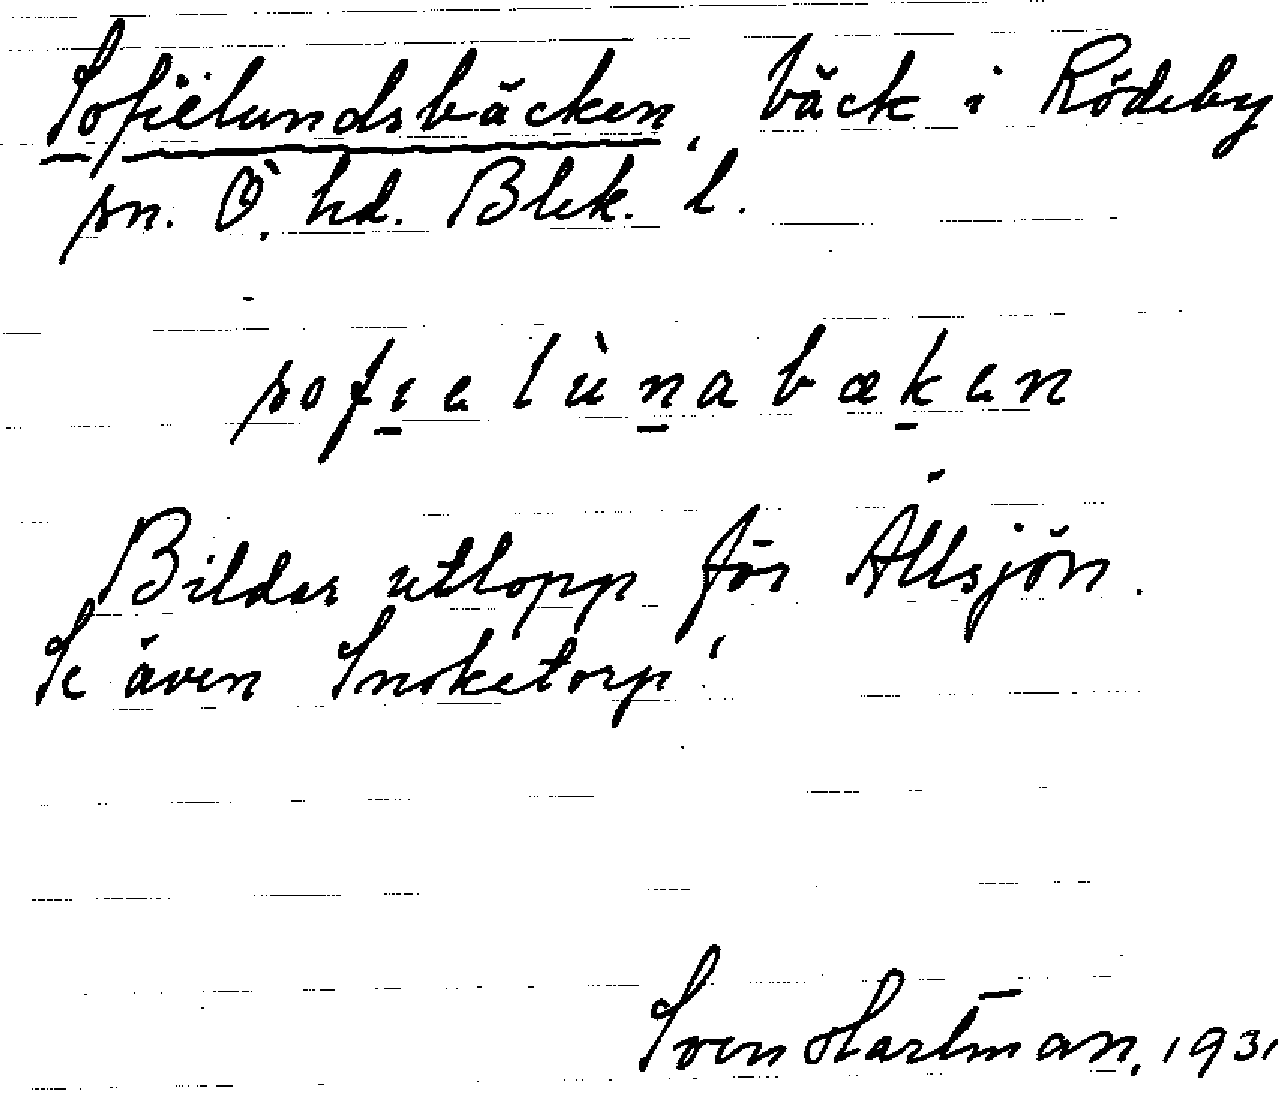 Sofielundsbäcken, bäck i Rödeby
sn. Ö. hd. Blek. l.
sofielùnabækən
Bildar utlopp för Allsjön.
Se även Snoketorp!
Sven Hartman, 1931